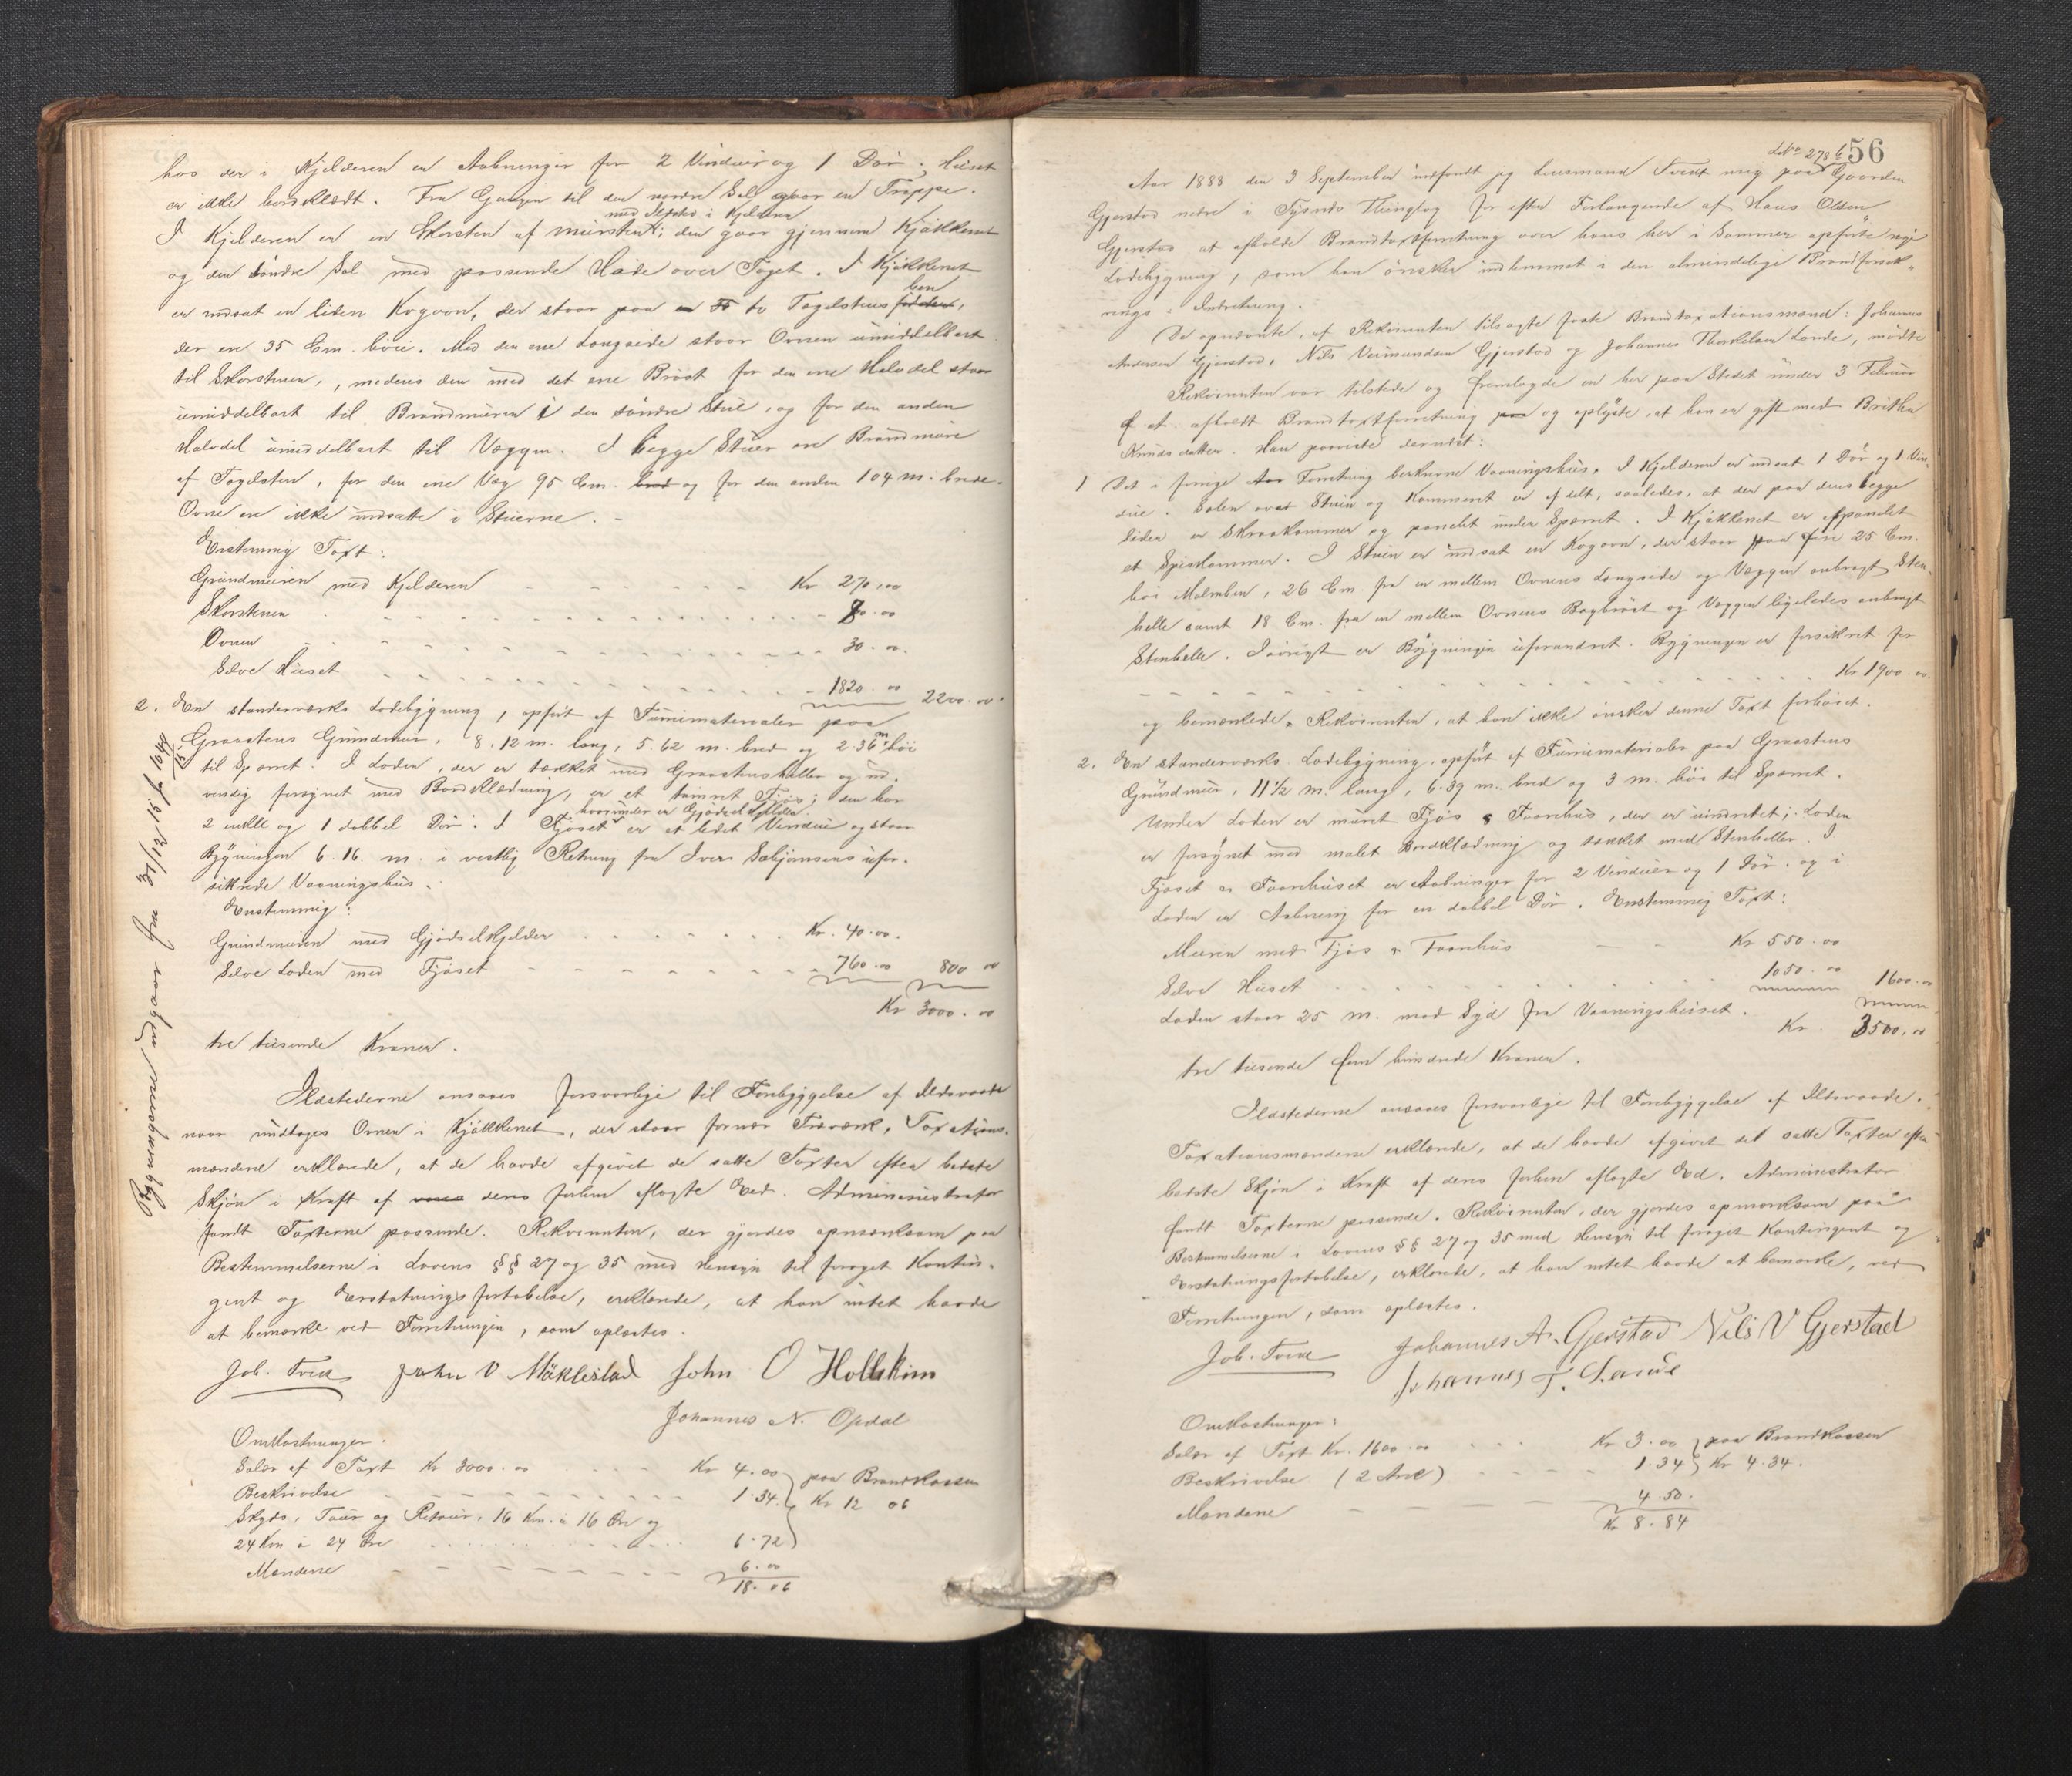 har der i Kjelderen er Aabninger for 2 Vinduer og 1 Dør; Huset
er ikke bordklædt. Fra Gangen til den nordre Sal gaar en Trappe.
med Ildsted i Kjelderen
I Kjelderen er en Skorsten af mursten; den gaar gjennem Kjøkkenet
og den søndre Sal med passende Høide over Taget. I Kjøkkenet
ben
er indsat en liden Kogovn, der staar paa to Taglstens
der ere 35 Cm. høie. Med den ene Langside staar Ovnen umiddelbart
til Skorstenen, medens den med det ene Bryst for den ene Halvdel staar
umiddelbart til Brandmuren i den søndre Stue, og for den anden
Halvdel umiddelbart til Væggen. I begge Stuer ere Brandmure
af Taglsten, for den ene Væg 95 Cm. bred og for den anden 104 m. brede.
Ovne ere ikke indsatte i Stuerne.
Enstemmig Taxt:
Grundmuren med Kjelderen Kr 270,00
Skorstenen 80.00
Ovnen 30.00.
Selve Huset 1820.00 2200.00.
2. En standerværks Ladebygning, opført af Furumaterialer paa
Graastens Grundmur, 8.12 m. lang, 5.62 m. bred og 2.36 m. høi
til Sparret. I Laden, der er tækket med Graastensheller og ud-
vendig forsynet med Bordklædning, er et tømret Fjøs; den har
hvorunder er Gjødselkjelder
2 enkle og 1 dobbel Dør. I Fjøset er et lidet Vindue og staar
Bygningen 6.16. m. i vestlig Retning fra Iver Sabjørnsens ufor-
sikrede Vaaningshus.
Enstemmig:
Grundmuren med Gjødselkjelder Kr. 40.00.
Selve Laden med Fjøset 760.00 800 00
Kr 3000.00
tre tusende Kroner.
Ildstederne ansaaes forsvarlige til Forebyggelse af Ildsvaade
naar undtages Ovnen i Kjøkkenet, der staar for nær Træværk. Taxations-
mændene erklærede, at de havde afgivet de satte Taxter efter bedste
Skjøn i Kraft af deres forhen aflagte Ed. Administrator
fandt Taxterne passende. Rekvirenten, der gjordes opmærksom paa
Bestemmelserne i Lovens §§ 27 og 35 med Hensyn til forøget Kontin-
gent og Erstatnings fortabelse, erklærede, at han intet havde
at bemærke ved Forretningen, som oplæstes.
Joh. Tvedt John V Mäklestad John O Hollekim
Johannes N. Opdal
Omkostninger.
Salær af Taxt Kr 3000.00 Kr 4.00 paa Brandkassen
Beskrivelse 1.34. Kr 12 06
Skyds, Tour og Retour, 16 Km. à 16 Øre og
24 Km à 24 Øre 6.72
Mændene 6.00
18.06
Bygningerne udgaar fra 31/12 15
No 278 b 56
Aar 1888 den 3 September indfandt jeg Lensmand Tvedt mig paa Gaarden
Gjerstad nedre i Tysnes Thinglag for efter Forlangende af Hans Olsen
Gjerstad at afholde Brandtaxtforretning over hans her i Sommer opførte nye
Ladebygning, som han ønsker indlemmet i den almindelige Brandforsik-
rings Indretning.
De opnævnte, af Rekvirenten tilsagte faste Brandtaxationsmænd: Johannes
Andersen Gjerstad, Nils Vermundsen Gjerstad og Johannes Therkelsen Lande, mødte
Rekvirenten var tilstede og fremlagde en her paa Stedet under 3 Februar
f. A. afholdt Brandtaxtforretning og oplyste, at han er gift med Britha
Knudsdatter. Han paaviste dernæst:
1 Det i forrige Forretning beskrevne Vaaningshus. I Kjelderen er indsat 1 Dør og 1 Vin-
due. Salen over Stuen og Kammeret er afdelt, saaledes, at der paa dens begge
Sider er Skraakammer og panelet under Sparret. I Kjøkkenet er afpanelet
et Spiskammer. I Stuen er indsat en Kogovn, der staar paa fire 25 Cm.
høie Malmben, 26 Cm fra en mellem Ovnens Langside og Væggen anbragt Sten-
helle samt 18 Cm. fra en mellem Ovnens Bagbryst og Væggen ligeledes anbragt
Stenhelle. Iøvrigt er Bygningen uforandret. Bygningen er forsikret for
Kr 1900.00.
og bemærkede Rekvirenten, at han ikke ønsker denne Taxt forhøiet.
2. En standerværks Ladebygning, opført af Furumaterialer paa Graastens
Grundmur, 11 1/2 m. lang, 6.39 m. bred og 3 m. høi til Sparret.
Under Laden er muret Fjøs & Faarehus, der er uindredet; Laden
er forsynet med malet Bordklædning og tækket med Stenheller. I
Fjøset & Faarehuset er Aabninger for 2 Vinduer og 1 Dør. og i
Laden er Aabning for en dobbel Dør. Enstemmig Taxt:
Muren med Fjøs & Faarehus Kr 550.00
Selve Huset 1050.00 1600.00
Laden staar 25 m. mod Syd fra Vaaningshuset.
Kr. 3500.00
tre tusende fem hundrede Kroner.
Ildstederne ansaaes forsvarlige til Forebyggelse af Ildsvaade.
Taxationsmændene erklærede, at de havde afgivet det satte Taxter efter
bedste Skjøn i Kraft af deres forhen aflagte Ed. Administrator
fandt Taxterne passende. Rekvirenten, der gjordes opmærksom paa
Bestemmelserne i Lovens §§ 27 og 35 med Hensyn til forøget Kontingent og
Erstatnings fortabelse, erklærede, at han intet havde at bemærke, ved
Forretningen, som oplæstes.
Joh. Tvedt Johannes A. Gjerstad Nils V Gjerstad
Johannes T. Lande
Omkostninger:
Salær af Taxt Kr. 1600.00 Kr 3.00 paa Brandkassen
Beskrivelse (2 Ark) 1.34 Kr 4.34.
Mændene 4.50.
Kr 8.84